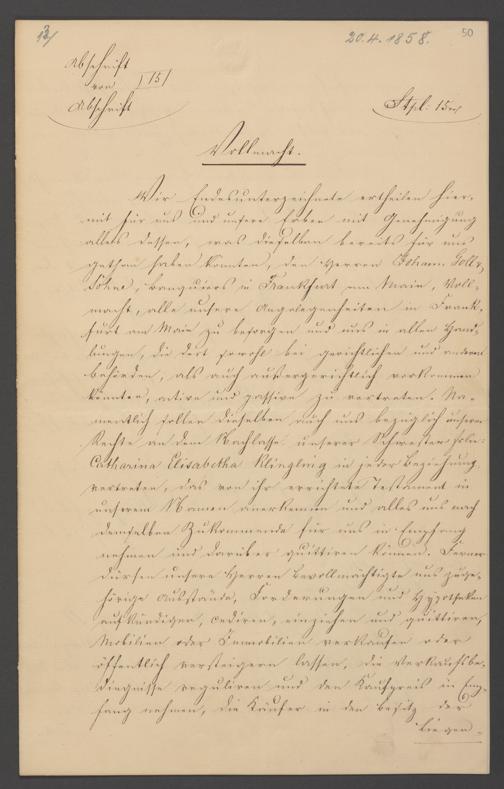 13/
20.4.1858.
50
Abschrift
von
Abschrift
15/
Stpl. 15
Vollmacht.
Wir Endesunterzeichnete ertheilen hier-
mit für uns und unsere Erben mit Genehmigung
alles dessen, was dieselben bereits für uns
gethan haben könnten, den Herren Johann Goll &
Söhne, Banquiers in Frankfurt am Main, Voll-
macht, alle unsere Angelegenheiten in Frank-
furt am Main zu besorgen und uns in allen Hand-
lungen, die dort sowohl bei gerichtlichen und anderen
Behörden, als auch außergerichtlich vorkommen
könnten, active und passive zu vertreten. Na-
mentlich sollen dieselben auch uns bezüglich unserer
Rechte an dem Nachlasse unserer Schwester
Catharina Elisabetha Klingling in jeder Beziehung
vertreten, das von ihr errichtete Testament in
unserem Namen anerkennen und alles uns nach
demselben Zukommende für uns in Empfang
nehmen und darüber quittiren können. Ferner
dürfen unsere Herren Bevollmächtigte uns zuge-
hörige Ausstände, Forderungen und Hypotheken
aufkündigen, cediren, einziehen und quittiren,
Mobilien oder Immobilien verkaufen oder
öffentlich versteigern lassen, die Verkaufsbe-
dingnisse reguliren und den Kaufpreis in Em-
pfang nehmen, die Käufer in den Besitz der
Liegen-